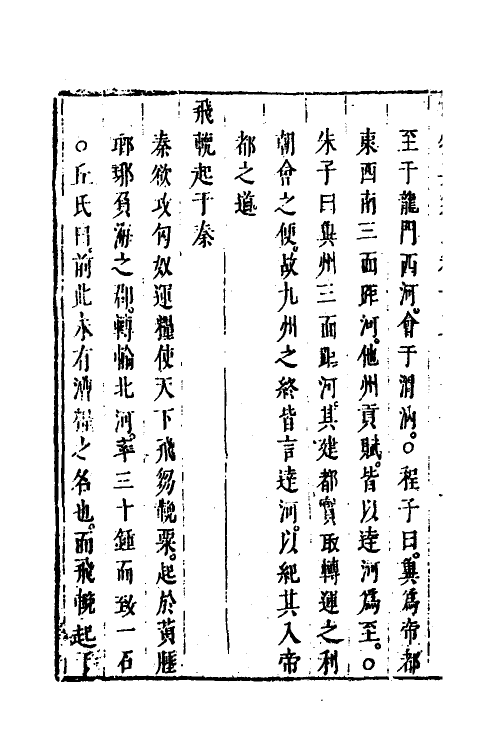 至于龍門西河。會于渭汭。○程子曰。冀爲帝都
東西南三面距河。他州貢賦。皆以達河爲至。○
朱子曰。冀州三面距河。其建都實取轉運之利
朝會之便。故九州之終皆言達河。以紀其入帝
都之道。
飛輓起于秦
秦欲攻匈奴運糧使天下飛芻輓粟。起於黃腄
瑯琊負海之郡。轉輸北河。率三十鍾而致一石
○丘氏曰。前此未有漕糧之名也。而飛輓起于